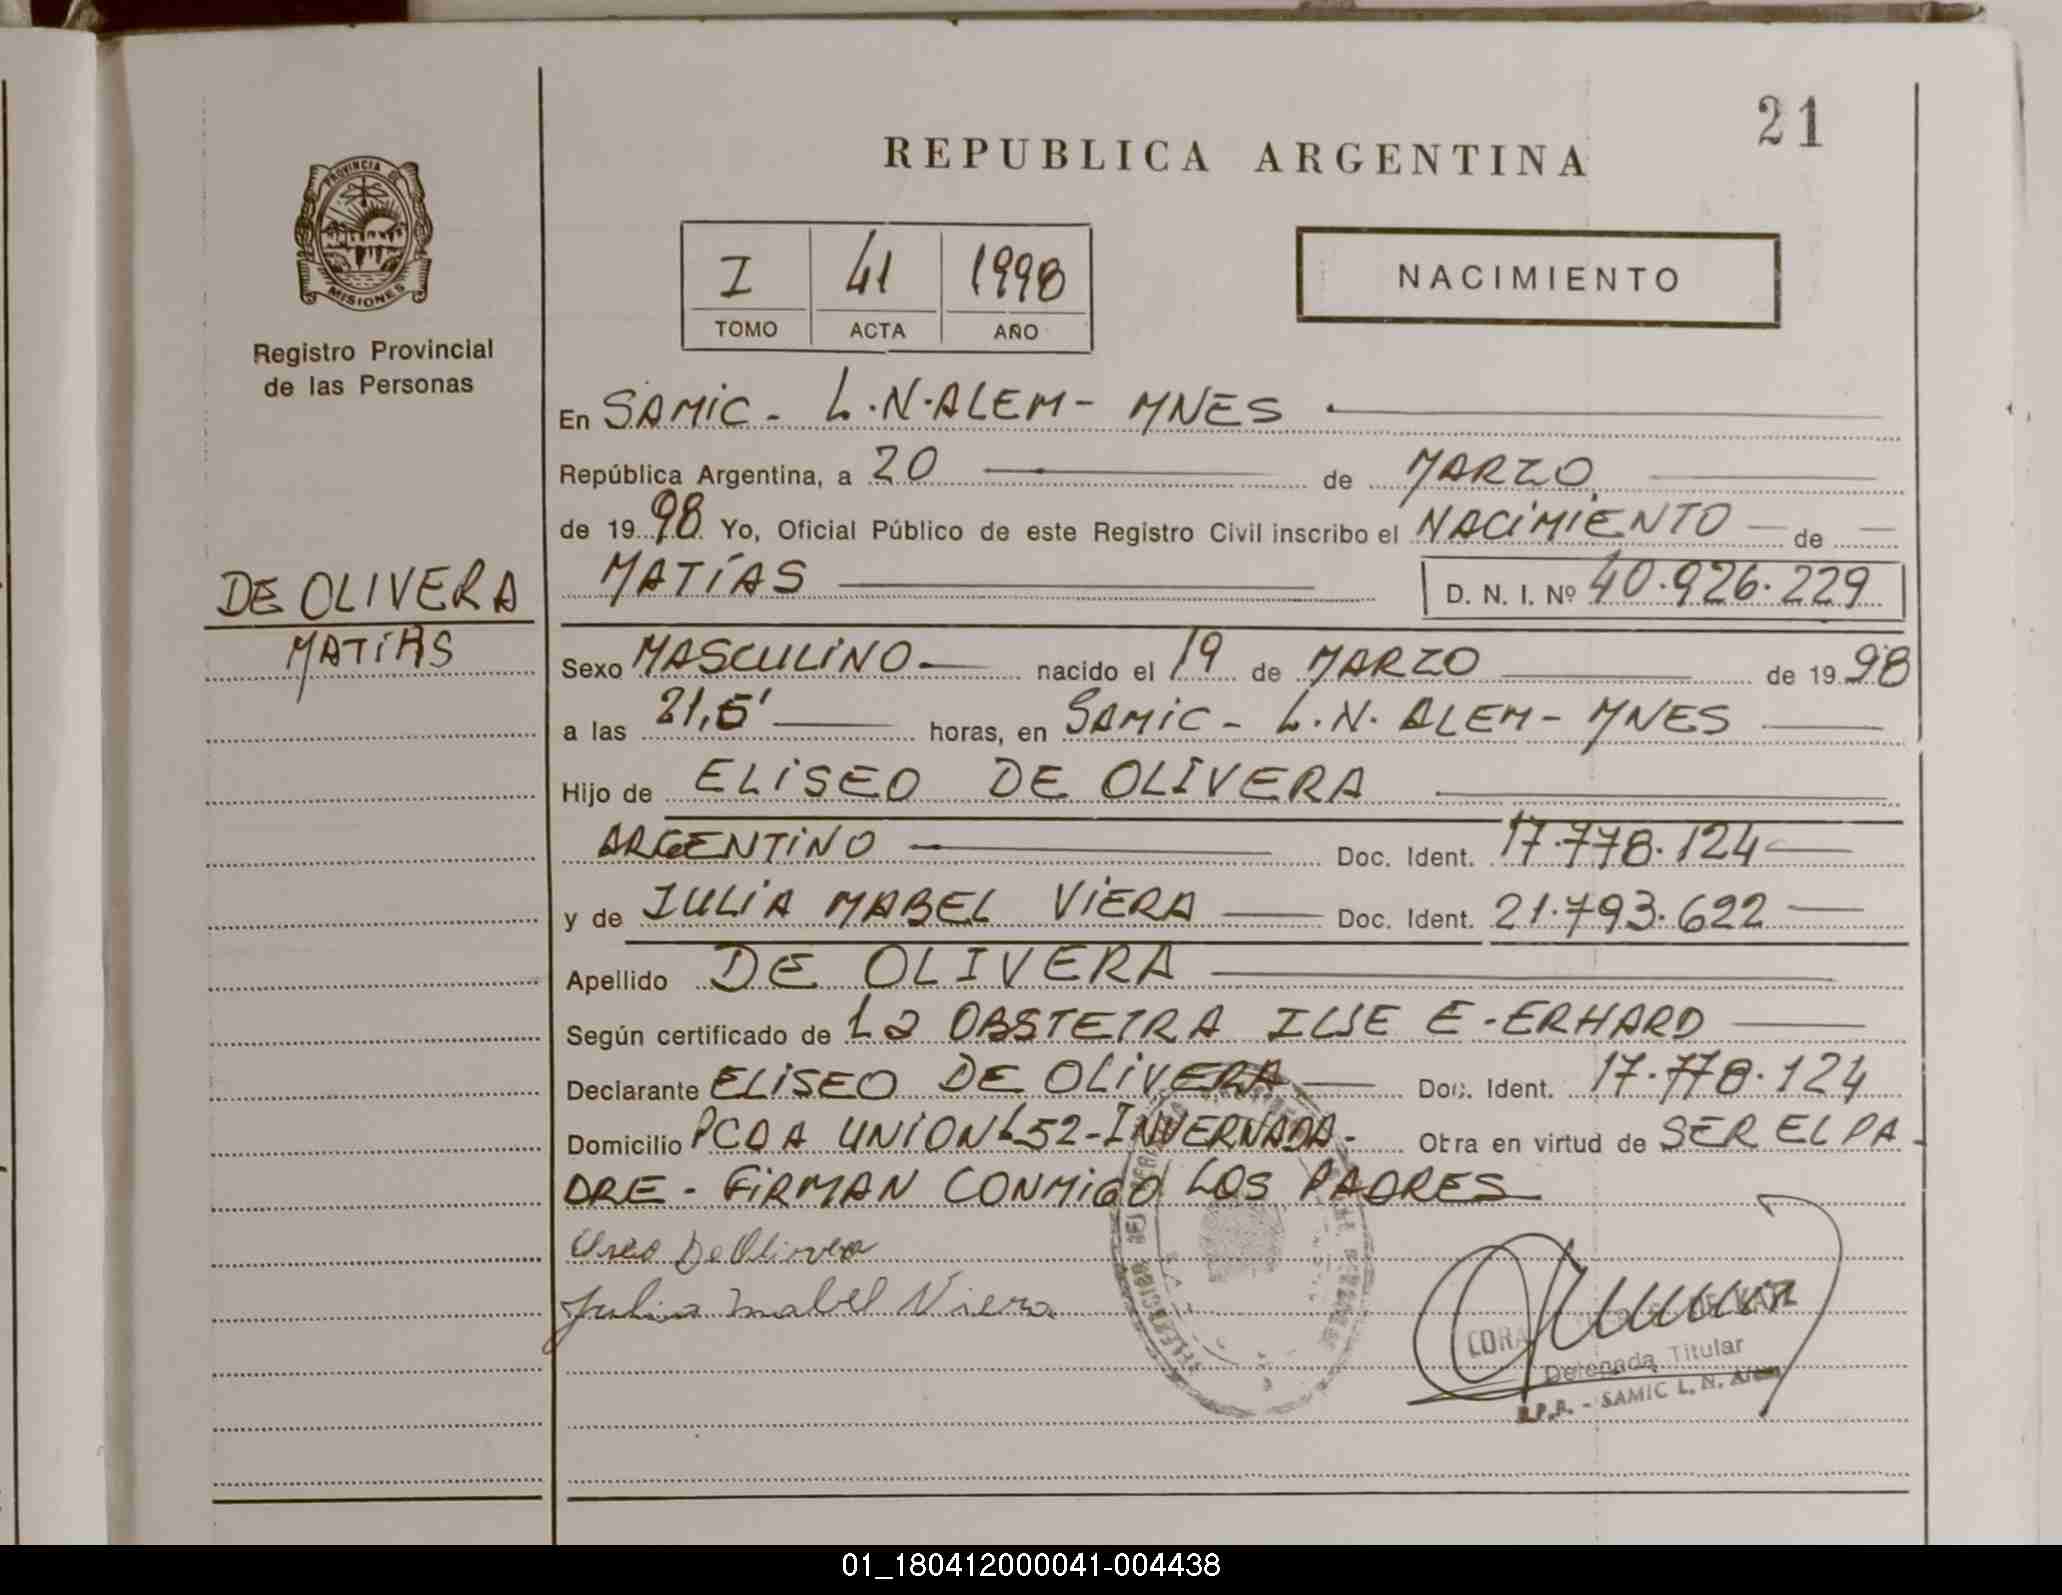 21
REPUBLICA ARGENTINA
PROVINCIA DE
MISIONES
Registro Provincial
de las Personas
I 41 1998
TOMO ACTA AÑO
NACIMIENTO
En SAMIC - L.N.ALEM - MNES
República Argentina, a 20 de MARZO
de 1998 Yo, Oficial Público de este Registro Civil inscribo el NACIMIENTO de
DE OLIVERA
MATÍAS
MATÍAS D. N. I. Nº 40.926.229
Sexo MASCULINO nacido el 19 de MARZO de 1998
a las 21,5' horas, en SAMIC - L.N. ALEM - MNES
Hijo de ELISEO DE OLIVERA
ARGENTINO Doc. Ident. 17.778.124
y de JULIA MABEL VIERA Doc. Ident. 21.793.622
Apellido DE OLIVERA
Según certificado de La OBSTETRA ILSE E. ERHARD
Declarante ELISEO DE OLIVERA Doc. Ident. 17.778.124
Domicilio PCDA UNION L52 - INVERNADA - Obra en virtud de SER EL PA-
DRE - FIRMAN CONMIGO LOS PADRES
De Olivera
Julia Mabel Viera
Delegada Titular
R.P.P. - SAMIC L. N. Alem
01_180412000041-004438